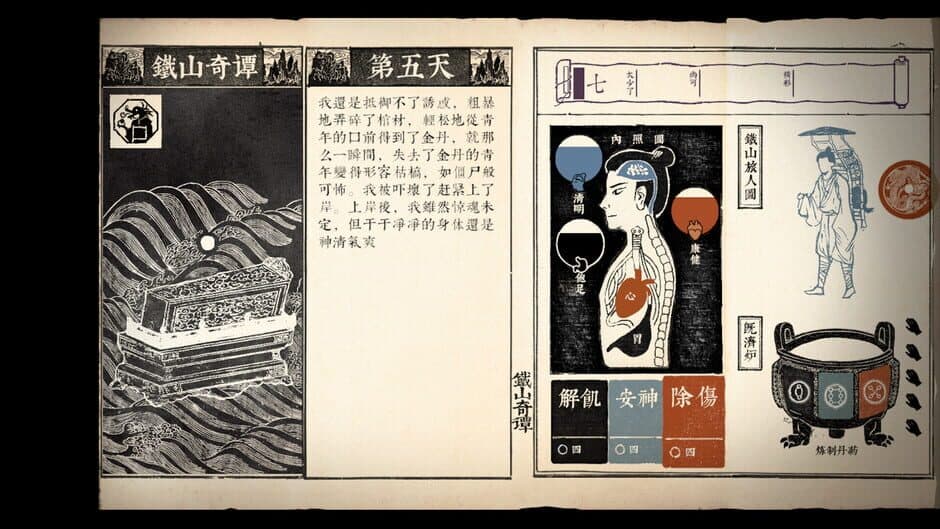 鐵山奇谭
第五天
我還是抵御不了誘惑，粗暴
地弄碎了棺材，輕松地從青
年的口前得到了金丹，就那
么一瞬間，失去了金丹的青
年變得形容枯槁，如僵尸般
可怖。我被吓壞了赶緊上了
岸。上岸後，我雖然惊魂未
定，但干干凈凈的身体還是
神清氣爽
鐵山奇谭
七 七
内照圖
清明
康健
心
胃
解飢
安神
除傷
四
四
四
鐵山旅人圖
既濟炉
炼制丹药